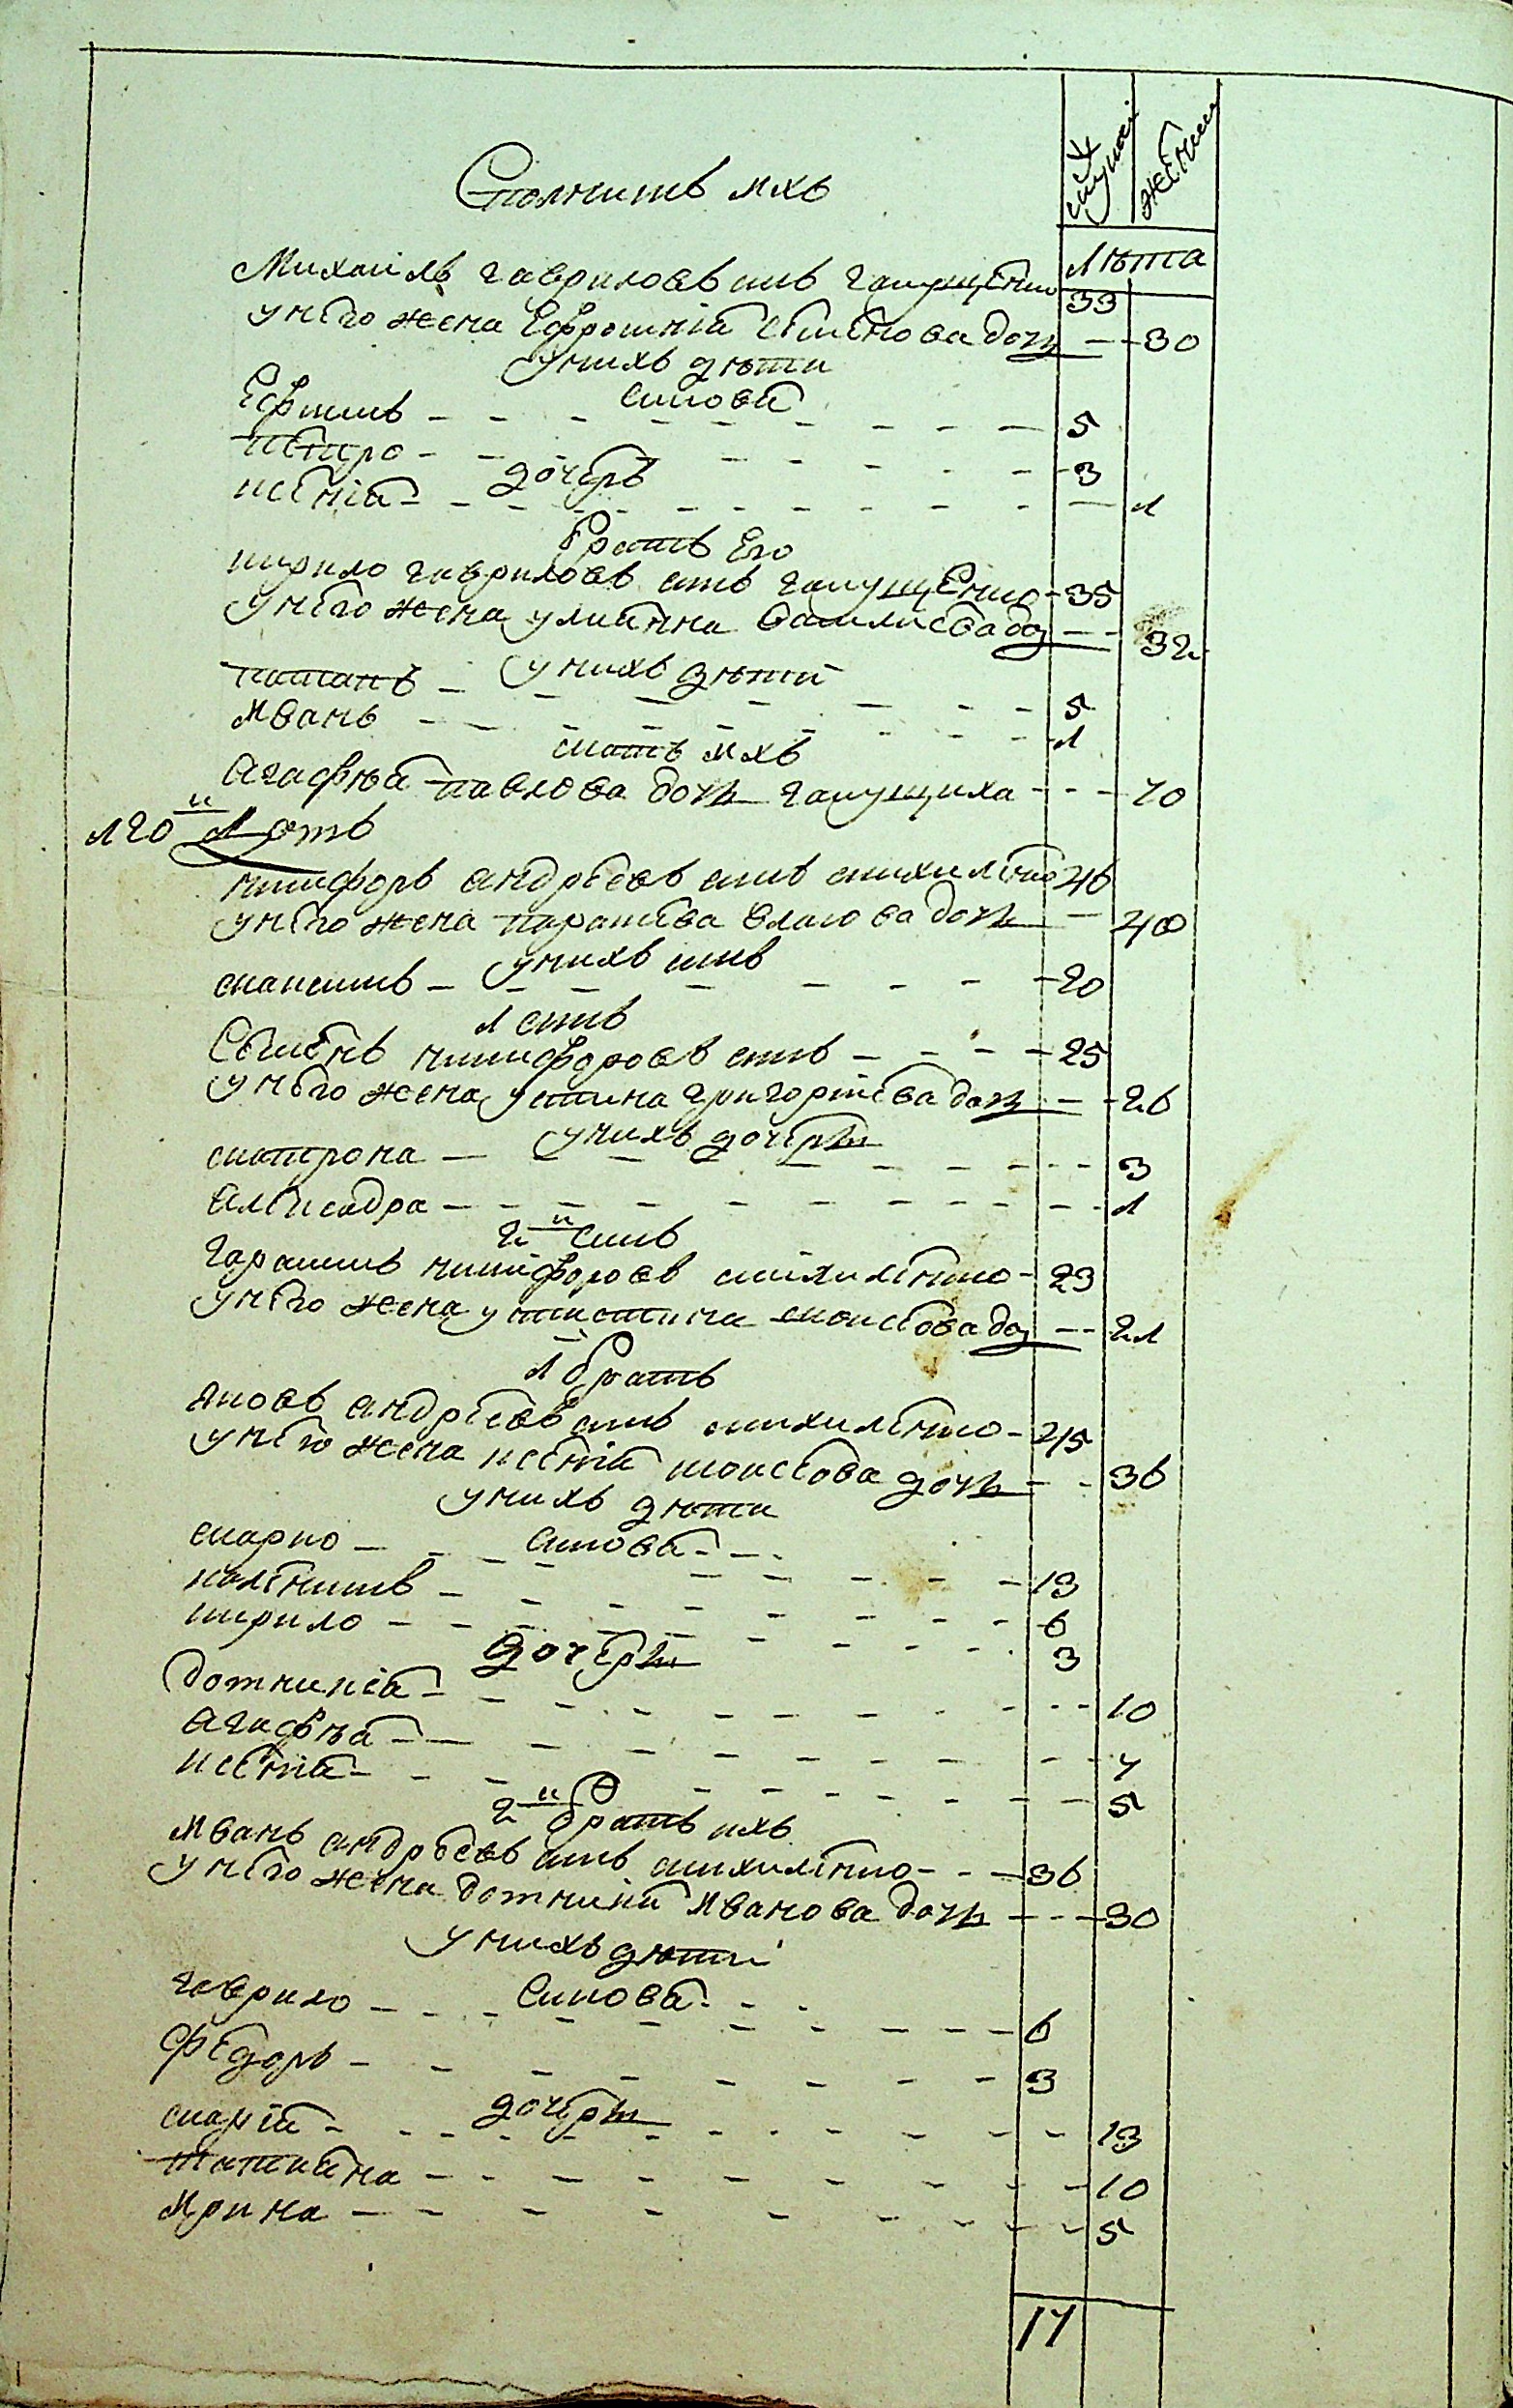 мужескъ женски
лѣта
Михаилъ гавриловъ синъ галущенко 33
у него жена Ефросинія семенова дочь 30
у нихъ дѣти
синовя
Ефимъ 5
петро 3
дочерь
ксенія 1
братъ Его
кирило гавриловъ синъ галущенко 35
у него жена улияна василиева до 32
у нихъ дѣти
потапъ 5
Иванъ 1
мать ихъ
Агафѣя павлова дочь галущиха 70
120 й
никифоръ андреевъ синъ михиленко 46
у него жена параскева власова дочь 40
у нихъ синъ
максимъ 20
1 синъ
Семенъ никифоровъ синъ 25
у него жена устина григориева дочь 26
у нихъ дочери
матрона 3
Алексадра 1
2 й синъ
гарасимъ никифоровъ михиленко 23
у него жена устина моисеова до 21
1 братъ
яковъ андреевъ синъ михиленко 45
у него жена ксения моисеова дочь 36
у нихъ дѣти
синовя
марко 13
климентъ 6
кирило 3
дочери
домникия 10
Агафѣя 7
ксения 5
2 й братъ ихъ
Иванъ андреевъ синъ михиленко 36
у него жена домникия Иванова дочь 30
у нихъ дѣти
гаврило синовя 6
федоръ 3
дочери
марія 13
татияна 10
Ирина 5
17